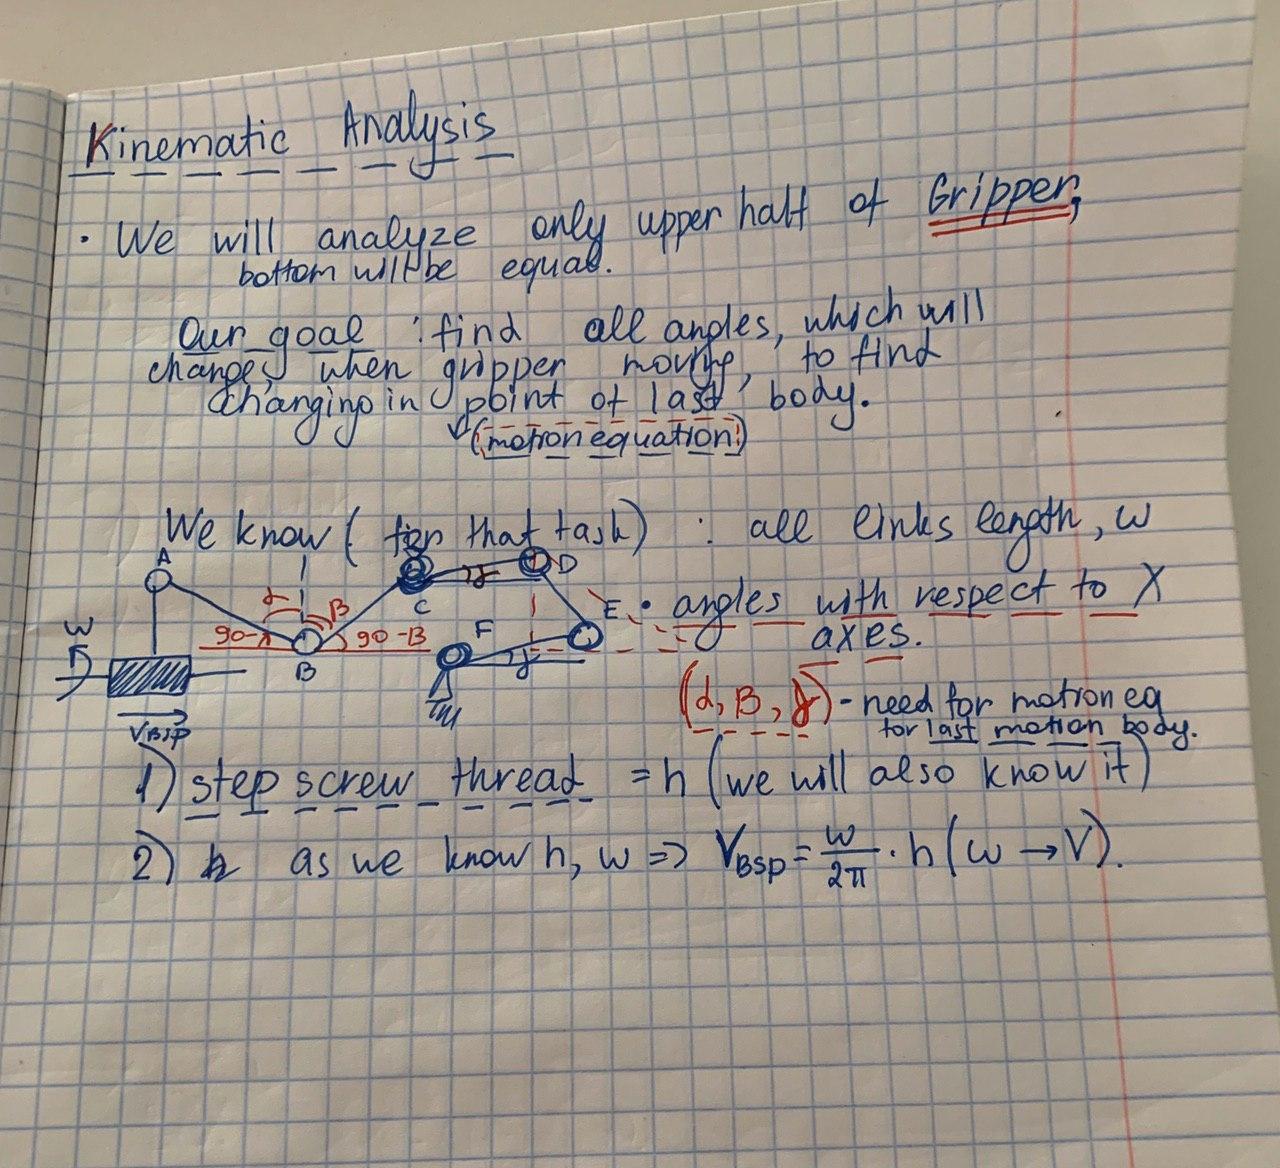 Kinematic Analysis
· We will analyze only upper half of Gripper,
bottom will be equal.
Our goal : find all angles, which will
change, when gripper moving, to find
changing in point of last body.
(motion equation)
We know ( for that task) : all links length, ω
A
C
D
E
F
B
ω
α
β
γ
γ
90-α
90-B
• angles with respect to X
axes.
(α, B, γ) - need for motion eq
for last motion body.
VBsp
1) step screw thread = h (we will also know it)
2) as we know h, ω => VBsp = ω/2π · h (ω → V).